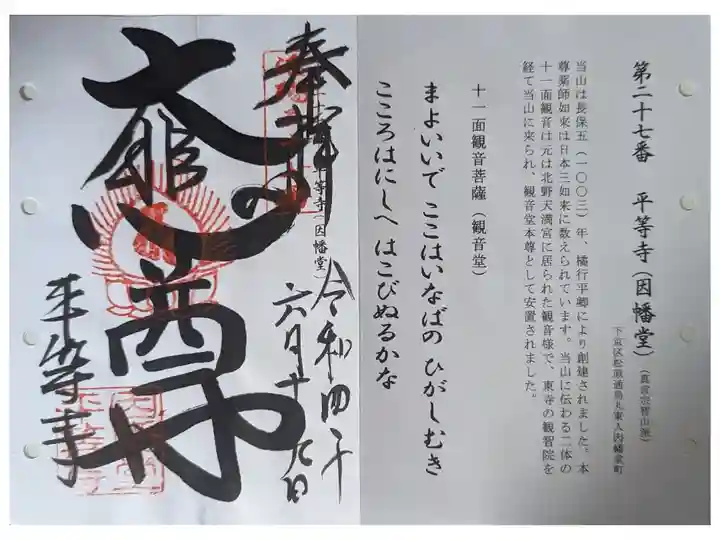 第二十七番　平等寺（因幡堂）（真言宗智山派）
下京区松原通烏丸東入因幡堂町
当山は長保五（一〇〇三）年、橘行平卿により創建されました。本
尊薬師如来は日本三如来に数えられています。当山に伝わる二体の
十一面観音は元は北野天満宮に居られた観音様で、東寺の観智院を
経て当山に来られ、観音堂本尊として安置されました。
十一面観音菩薩（観音堂）
まよいいで ここはいなばの ひがしむき
こころはにしへ はこびぬるかな
奉拝
平等寺（因幡堂）
令和四年
六月十九日
大悲尊
平等寺